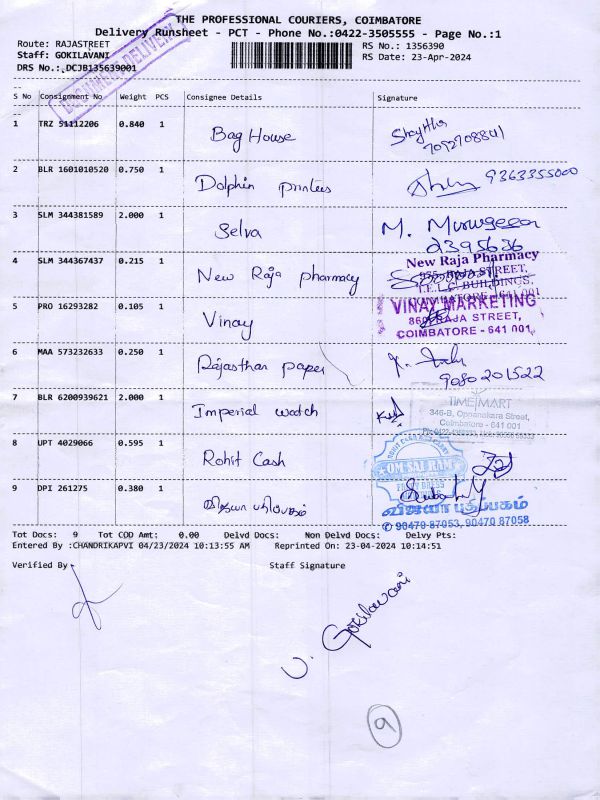 THE PROFESSIONAL COURIERS, COIMBATORE
Delivery Runsheet - PCT - Phone No.:0422-3505555 - Page No.:1
Route: RAJASTREET
RS No.: 1356390
Staff: GOKILAVANI
RS Date: 23-Apr-2024
DRS No.: DCJB135639001
S No Consignment No Weight PCS Consignee Details Signature
1 TRZ 51112206 0.840 1 Bag House
7092708841
2 BLR 1601010520 0.750 1 Dolphin printers 9363355000
3 SLM 344381589 2.000 1 Selva M. Murugesan
2395636
4 SLM 344367437 0.215 1 New Raja pharmacy New Raja Pharmacy
RAJA STREET,
T.E.L.C. BUILDINGS,
COIMBATORE - 641 001
5 PRO 16293282 0.105 1 Vinay VINAY MARKETING
RAJA STREET,
COIMBATORE - 641 001.
6 MAA 573232633 0.250 1 Rajasthan paper
9080201522
7 BLR 6200939621 2.000 1 Imperial watch TIME MART
346-B, Oppanakara Street,
Coimbatore - 641 001
8 UPT 4029066 0.595 1 Rohit Cash OM SAI RAM
9 DPI 261275 0.380 1
விஜயா புத்தகம்
✆ 90470 87053, 90470 87058
Tot Docs: 9 Tot COD Amt: 0.00 Delvd Docs: Non Delvd Docs: Delvy Pts:
Entered By :CHANDRIKAPVI 04/23/2024 10:13:55 AM Reprinted On: 23-04-2024 10:14:51
Verified By Staff Signature
U. Gokilavani
9